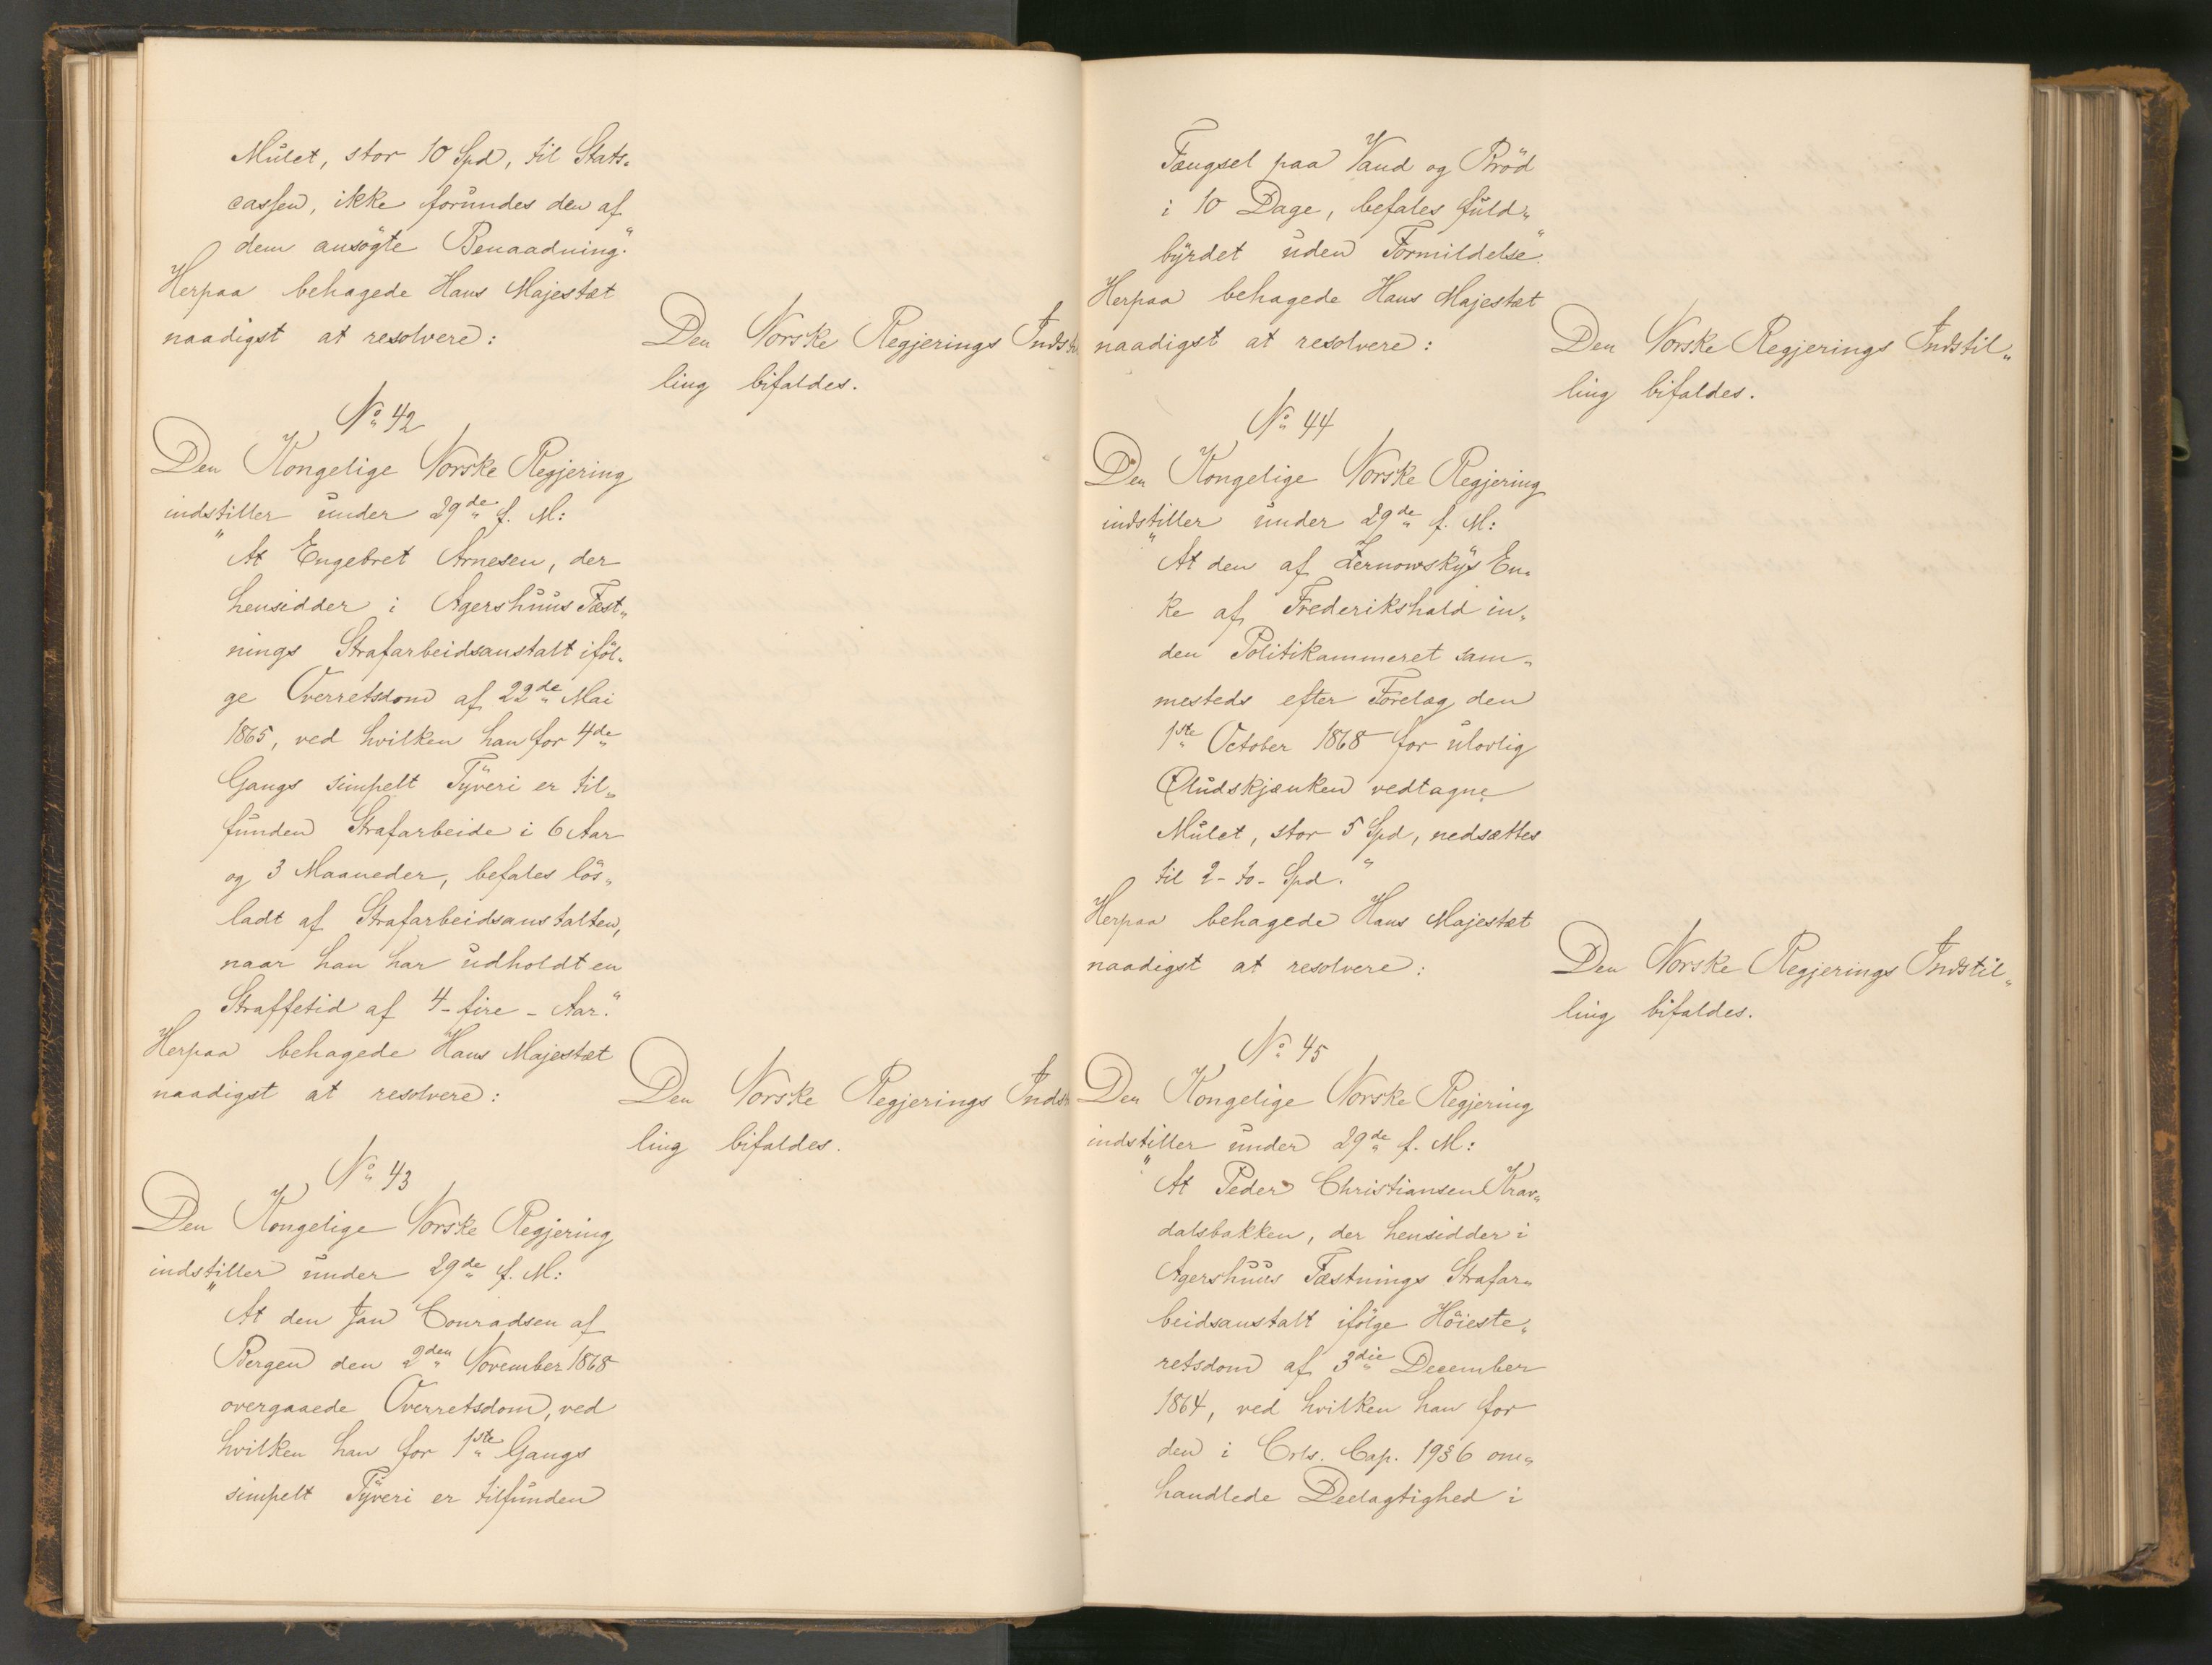 Mulct, stor 10 Spd, til Stats-
cassen, ikke forundes den af
dem ansögte Benaadning."
Herpaa behagede Hans Majestæt
naadigst at resolvere:
Den Norske Regjerings Indstil
ling bifaldes.
No 42
Den Kongelige Norske Regjering
indstiller under 29de f. M:
"At Engebret Arnesen, der
hensidder i Agershuus Fæst-
nings Strafarbeidsanstalt iföl-
ge Overretsdom af 22de Mai
1865, ved hvilken han for 4de
Gangs simpelt Tyveri er til-
funden Strafarbeide i 6 Aar
og 3 Maaneder, befales lös-
ladt af Strafarbeidsanstalten,
naar han har udholdt en
Straffetid af 4 - fire - Aar."
Herpaa behagede Hans Majestæt
naadigst at resolvere:
Den Norske Regjerings Indst
ling bifaldes.
No 43
Den Kongelige Norske Regjering
indstiller under 29de f. M:
"At den Jan Conradsen af
Bergen den 2den November 1868
overgaaede Overretsdom, ved
hvilken han for 1ste Gangs
simpelt Tyveri er tilfunden
Fængsel paa Vand og Bröd
i 10 Dage, befales fuld-
byrdet uden Formildelse."
Herpaa behagede Hans Majestæt
naadigst at resolvere:
Den Norske Regjerings Indstil-
ling bifaldes.
No 44
Den Kongelige Norske Regjering
indstiller under 29de f. M:
"At den af Zernowskys En-
ke af Frederikshald in-
den Politikammeret sam-
mesteds efter Forelæg den
1ste October 1868 for ulovlig
Øludskjænken vedtagne
Mulct, stor 5 Spd, nedsættes
til 2 - to - Spd."
Herpaa behagede Hans Majestæt
naadigst at resolvere:
Den Norske Regjerings Indstil-
ling bifaldes.
No 45
Den Kongelige Norske Regjering
indstiller under 29de f. M:
"At Peder Christiansen Krav-
dalsbakken, der hensidder i
Agershuus Fæstnings Strafar-
beidsanstalt ifölge Höieste-
retsdom af 3die December
1864, ved hvilken han for
den i Crls. Cap. 19 § 6 om-
handlede Deelagtighed i